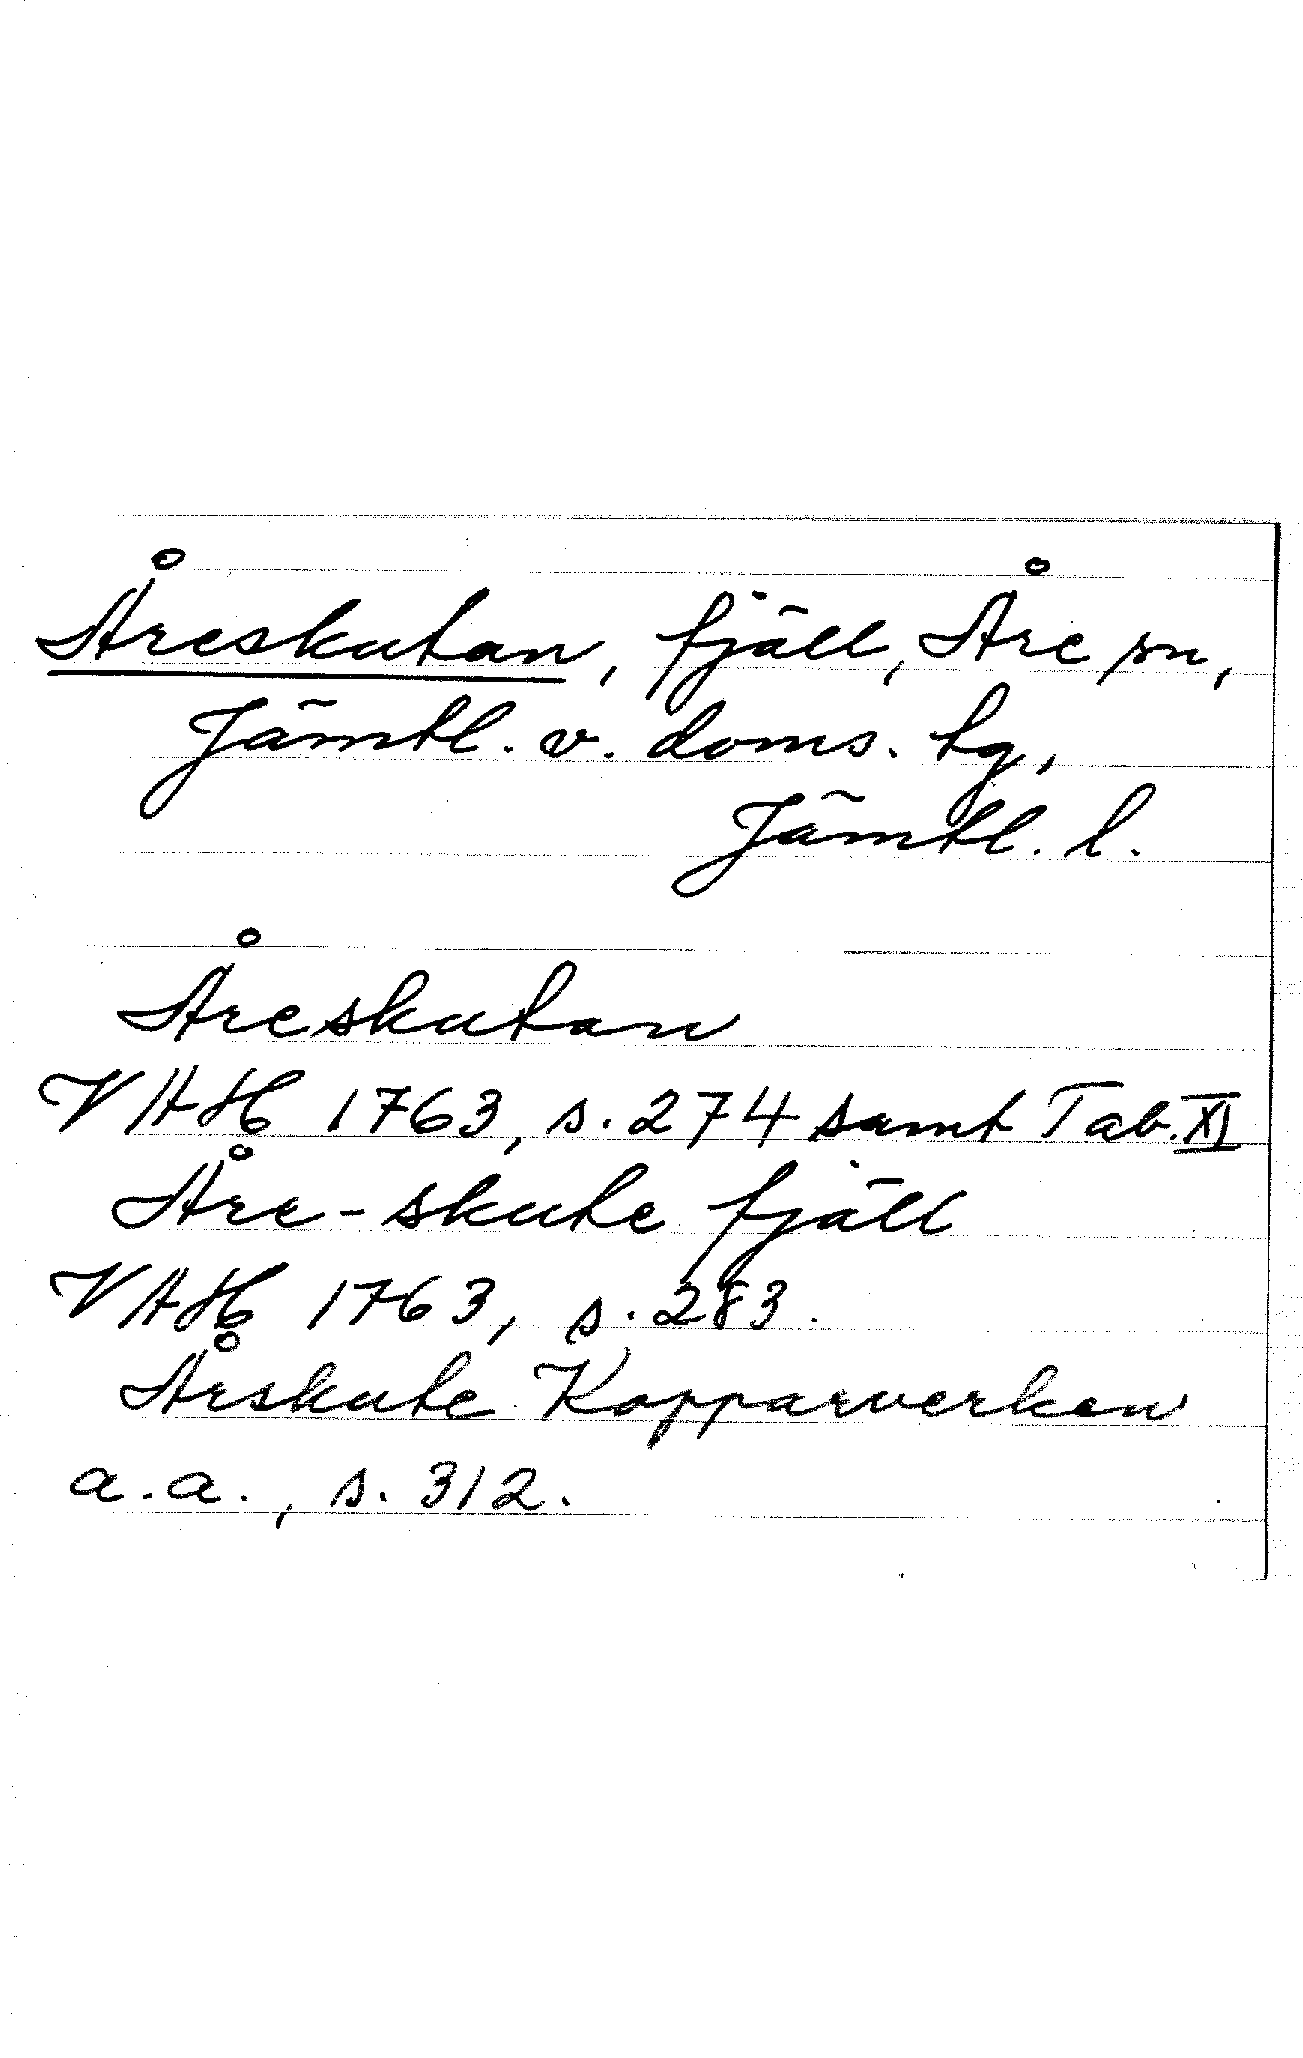 Åreskutan, fjäll, Åre sn,
Jämtl. v. doms. tg,
Jämtl. l.
Åreskutan
VAH 1763, s. 274 samt Tab. XI
Åre-skute fjäll
VAH 1763, s. 283.
Årskute Kopparverken
a.a., s. 312.